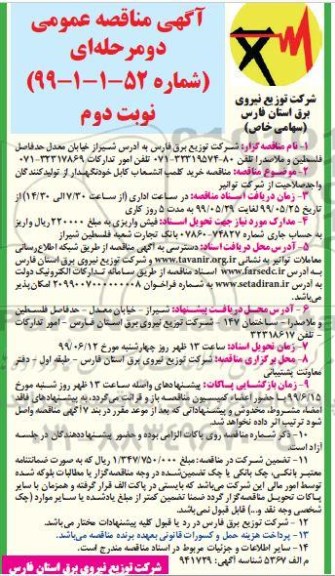 آگهی مناقصه عمومی
دومرحله‌ای
(شماره ۵۲-۱-۱-۹۹)
نوبت دوم
شرکت توزیع نیروی
برق استان فارس
(سهامی خاص)
۱- نام مناقصه‌گزار: شرکت توزیع برق فارس به آدرس شیراز خیابان معدل حدفاصل
فلسطین و ملاصدرا تلفن ۸۰-۳۲۳۱۹۵۷۴-۰۷۱ تلفن امور تدارکات ۳۲۳۱۷۸۶۹-۰۷۱
۲- موضوع مناقصه: مناقصه خرید کلمپ انشعاب کابل خودنگهدار از تولیدکنندگان
واجدصلاحیت از شرکت توانیر
۳- زمان دریافت اسناد مناقصه: در ساعت اداری (از ساعت ۷/۳۰ الی ۱۴/۳۰) از
تاریخ ۹۹/۰۵/۲۵ لغایت ۹۹/۰۵/۲۹ به مدت ۵ روز کاری
۴- مدارک مورد نیاز جهت تحویل اسناد: فیش واریزی به مبلغ ۲۲۰۰۰۰ ریال واریز
به حساب جاری شماره ۰۷۸۶۰۰۷۴۸۲۷ بانک تجارت شعبه فلسطین شیراز
۵- آدرس محل دریافت اسناد: دسترسی به آگهی مناقصه از طریق شبکه اطلاع‌رسانی
معاملات توانیر به نشانی www.tavanir.org.ir و شرکت توزیع نیروی برق استان فارس
به آدرس www.farsedc.ir اسناد مناقصه از طریق سامانه تدارکات الکترونیک دولت
به آدرس www.setadiran.ir به شماره فراخوان ۲۰۹۹۰۰۷۰۰۰۰۰۰۰۸ امکان‌پذیر
می‌باشد.
۶- آدرس محل دریافت پیشنهاد: شیراز - خیابان معدل - حدفاصل فلسطین
و ملاصدرا - ساختمان ۱۴۷ شرکت توزیع نیروی برق استان فارس - امور تدارکات
- تلفن ۳۲۳۱۸۶۱۷
۷- زمان تحویل اسناد: ساعت ۱۳ ظهر روز چهارشنبه مورخ ۹۹/۰۶/۱۲
۸- محل برگزاری مناقصه: شرکت توزیع نیروی برق استان فارس - طبقه اول - دفتر
معاونت پشتیبانی
۹- زمان بازگشایی پاکات: پیشنهادهای واصله ساعت ۱۳ ظهر روز شنبه مورخ
۹۹/۶/۱۵ با حضور اعضاء کمیسیون مناقصه باز و قرائت می‌گردد، به پیشنهادهای فاقد
امضاء، مشروط، مخدوش و پیشنهاداتی که بعد از موعد مقرر در بند ۷ آگهی مناقصه واصل
شود ترتیب اثر داده نخواهد شد.
۱۰- ذکر شماره مناقصه روی پاکات الزامی بوده و حضور پیشنهاددهندگان در جلسه
آزاد است.
۱۱- تضمین شرکت در مناقصه: مبلغ ۱/۳۴۷/۷۵۰/۰۰۰ ریال که به صورت ضمانتنامه
معتبر بانکی، چک بانکی یا چک تضمین‌شده در وجه مناقصه‌گزار یا مطالبات بلوکه شده
توسط امور مالی این شرکت می‌باشد که بایستی در پاکت الف قرار گرفته و همزمان با سایر
پاکات تحویل مناقصه‌گزار گردد ضمنا تضمین کمتر از مبلغ یادشده یا سایر موارد (چک
شخصی وجه نقد و...) قابل قبول نمی‌باشد.
۱۲- شرکت توزیع نیروی برق فارس در رد یا قبول کلیه پیشنهادات مختار می‌باشد.
۱۳- پرداخت هزینه حمل و کسورات قانونی بعهده برنده مناقصه می‌باشد.
۱۴- سایر اطلاعات و جزئیات مربوط در اسناد مناقصه مندرج است.
م الف ۵۳۶۷ شناسه آگهی: ۹۴۱۷۲۹
شرکت توزیع نیروی برق استان فارس